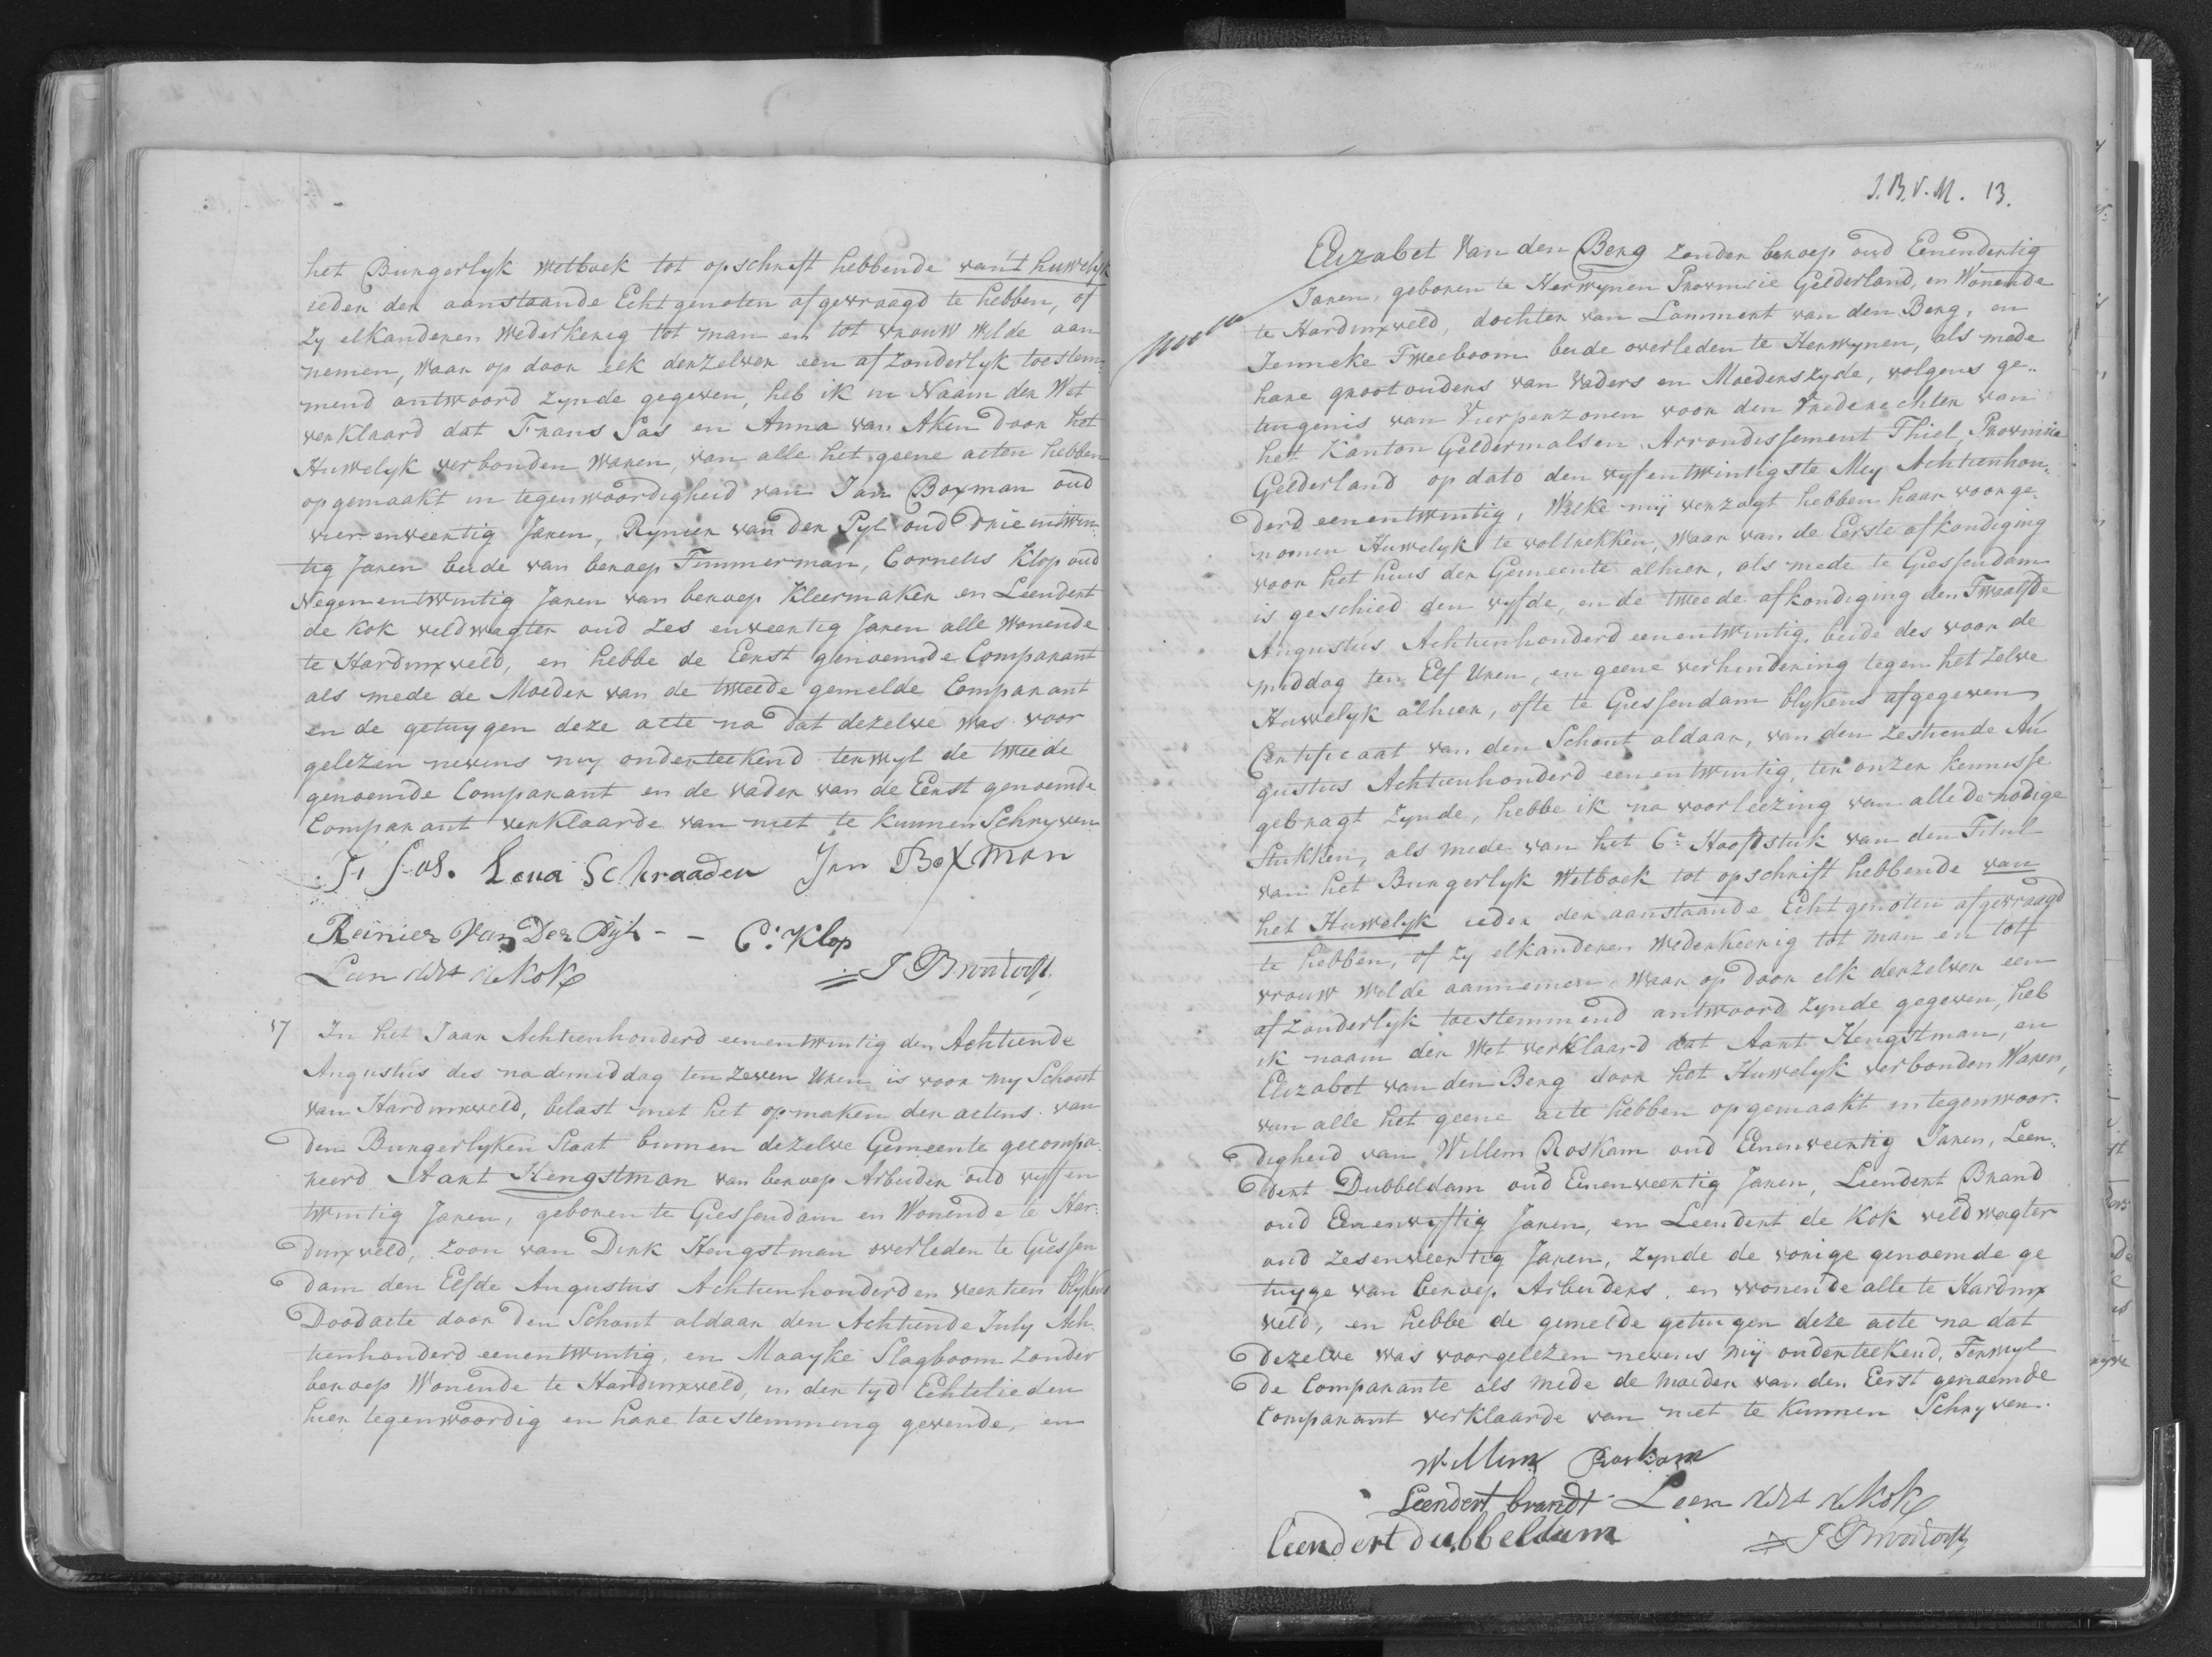 het Burgerlyk wetboek tot opschrift hebbende van 't huwelyk
ieder der aanstaande Echtgenoten afgevraagd te hebben, of
zy elkanderen wederkerig tot man en tot vrouw wilde aan
nemen, waar op door elk derzelver een afzonderlyk toestem-
mend antwoord zynde gegeven, heb ik in Naam der Wet
verklaard dat Frans Sas en Anna van Aken door het
Huwelyk verbonden waren, van alle het geene acten hebben
opgemaakt in tegenwoordigheid van Jan Boxman oud
vier enveertig Jaren, Rynier van der Pyl oud drie entwin-
tig Jaren beide van beroep Timmerman, Cornelis Klop oud
Negenentwintig Jaren van beroep Kleermaker en Leendert
de Kok veldwagter oud zes enveertig Jaren alle wonende
te Hardinxveld, en hebbe de Eerst genoemde Comparant
als mede de Moeder van de tweede gemelde Comparant
en de getuygen deze acte na dat dezelve was voor
gelezen nevens my onderteekend terwyl de tweede
genoemde Comparant en de vader van de Eerst genoemde
Comparant verklaarde van niet te kunnen Schryven
F. Sas. Lena Schraaden Jan Boxman
Reinier Van Der Pijl - - C: Klop
Leendert de Kok
17 In het Jaar Achtienhonderd eenentwintig den Achtiende
Augustus des nademiddag ten zeven Uren is voor my Schout
van Hardinxveld, belast met het opmaken der actens van
den Burgerlyken Staat binnen dezelve Gemeente gecompa-
reerd Aart Hengstman van beroep Arbeider oud vyf en
twintig Jaren, geboren te Giessendam en Wonende te Har-
dinxveld, zoon van Dirk Hengstman overleden te Giessen
dam den Elfde Augustus Achtienhonderd en veertien blykens
Doodacte door den Schout aldaar den Achtiende July Ach
tienhonderd eenentwintig, en Maayke Slagboom zonder
beroep Wonende te Hardinxveld, in der tyd Echtelieden
hier tegenwoordig en hare toestemming gevende, en
J.B.V.M. 13.
Elizabet Van den Berg zonder beroep oud Eenendertig
Jaren, geboren te Herwynen Provincie Gelderland, en Wonende
te Hardinxveld, dochter van Lammert van den Berg, en
Jenneke Tweeboom beide overleden te Herwynen, als mede
hare grootouders van Vaders en Moederszyde, volgens ge-
tuigenis van Vierperzonen voor den Vrederechter van
het Kanton Geldermalsen Arrondissement Thiel, Provincie
Gelderland op dato den vyfentwintigste Mey Achtienhon-
derd eenentwintig, Welke mij verzogt hebben haar voorge-
nomen Huwelyk te voltrekken, waar van de Eerste afkondiging
voor het huis der Gemeente alhier, als mede te Giessendam
is geschied den vyfde, en de tweede afkondiging den Twaalfde
Augustus Achtienhonderd eenentwintig, beide des voor de
middag ten Elf Uren, en geene verhindering tegen het zelve
Huwelyk alhier, ofte te Giessendam blykens afgegeven
Certificaat van den Schout aldaar, van den zestiende Au
gustus Achtienhonderd eenentwintig, ter onzer kennisse
gebragt zynde, hebbe ik na voorleezing van alle de nodige
Stukken, als mede van het 6e Hoofdstuk van den Titul
van het Burgerlyk Wetboek tot opschrift hebbende van
het Huwelyk ieder der aanstaande Echtgenoten afgevraagd
te hebben, of zy elkanderen wederkeerig tot man en tot
vrouw wilde aannemen, waar op door elk derzelver een
afzonderlyk toestemmend antwoord zynde gegeven, heb
ik naam der Wet verklaard dat Aart Hengstman, en
Elizabet van den Berg door het Huwelyk verbonden Waren,
van alle het geene acte hebben opgemaakt in tegenwoor-
digheid van Willem Roskam oud Eenenveertig Jaren, Leen-
dert Dubbeldam oud Eenenveertig Jaren, Leendert Brand
oud Eenenvyftig Jaren, en Leendert de Kok veldwagter
oud zesenveertig Jaren, zynde de vorige genoemde ge
tuyge van beroep Arbeiders, en wonende alle te Hardinx
veld, en hebbe de gemelde getuigen deze acte na dat
dezelve was voorgelezen nevens mij onderteekend, Terwyl
de Comparante als mede de moeder van den Eerst genoemde
Comparant verklaarde van niet te kunnen Schryven.
Willem Roskam
Leendert brandt Leendert de Kok
leendert dubbeldam